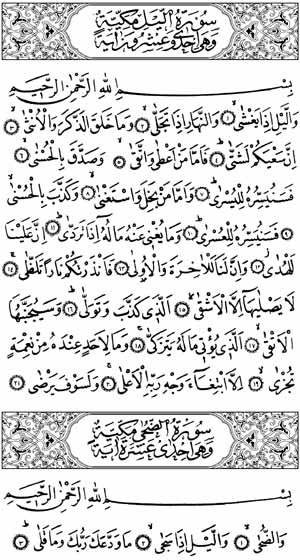 سُورَةُ الَّيْلِ مَكِّيَّةٌ
وَهِيَ اِحْدٰى وَعِشْرُونَ اٰيَةً
بِسْمِ اللّٰهِ الرَّحْمٰنِ الرَّحِيمِ
وَالَّيْلِ اِذَا يَغْشٰىۙ ١ وَالنَّهَارِ اِذَا تَجَلّٰىۙ ٢ وَمَا خَلَقَ الذَّكَرَ وَالْاُنْثٰىۙ ٣
اِنَّ سَعْيَكُمْ لَشَتّٰىۜ ٤ فَاَمَّا مَنْ اَعْطٰى وَاتَّقٰىۙ ٥ وَصَدَّقَ بِالْحُسْنٰىۙ ٦
فَسَنُيَسِّرُهُ لِلْيُسْرٰىۜ ٧ وَاَمَّا مَنْ بَخِلَ وَاسْتَغْنٰىۙ ٨ وَكَذَّبَ بِالْحُسْنٰىۙ
٩ فَسَنُيَسِّرُهُ لِلْعُسْرٰىۜ ١٠ وَمَا يُغْنِي عَنْهُ مَالُهُٓ اِذَا تَرَدّٰىۜ ١١ اِنَّ عَلَيْنَا
لَلْهُدٰىۘ ١٢ وَاِنَّ لَنَا لَلْاٰخِرَةَ وَالْاُو۫لٰى ١٣ فَاَنْذَرْتُكُمْ نَارًا تَلَظّٰىۚ ١٤
لَا يَصْلٰيهَٓا اِلَّا الْاَشْقٰىۙ ١٥ اَلَّذِي كَذَّبَ وَتَوَلّٰىۜ ١٦ وَسَيُجَنَّبُهَا
الْاَتْقٰىۙ ١٧ اَلَّذِي يُؤْتِي مَالَهُ يَتَزَكّٰىۚ ١٨ وَمَا لِاَحَدٍ عِنْدَهُ مِنْ نِعْمَةٍ
تُجْزٰىۙ ١٩ اِلَّا ابْتِغَٓاءَ وَجْهِ رَبِّهِ الْاَعْلٰىۚ ٢٠ وَلَسَوْفَ يَرْضٰى ٢١
سُورَةُ الضُّحٰى مَكِّيَّةٌ
وَهِيَ اِحْدٰى عَشْرَةَ اٰيَةً
بِسْمِ اللّٰهِ الرَّحْمٰنِ الرَّحِيمِ
وَالضُّحٰىۙ ١ وَالَّيْلِ اِذَا سَجٰىۙ ٢ مَا وَدَّعَكَ رَبُّكَ وَمَا قَلٰىۜ ٣